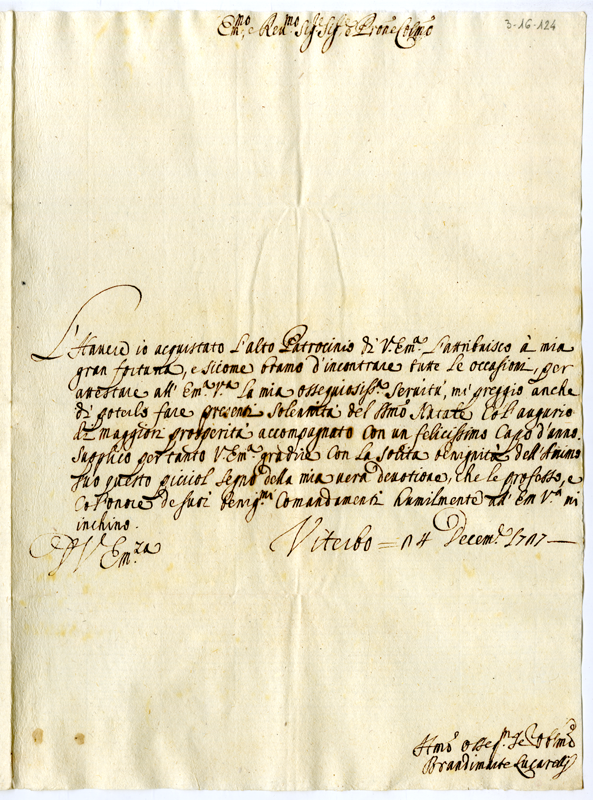 3-16-124
Em.mo e Reu.mo Sig.r Sig.r e Prone Col.mo
L'Hauere io acquistato l'alto Patrocinio di V. Em.a l'attribuisco à mia
gran fortuna, e sicome bramo d'incontrare tutte le occasioni, per
attestare all' Em.a V.a la mia ossequiosiss.a Seruitù, mi preggio anche
di poterlo fare presenti Solennità del SSmo Natale coll'augurio
di maggiori prosperità accompagnato con un felicissimo Capo d'anno.
Supplico per tanto V. Em.a gradire con la solita benignità dell'Animo
suo questo picciol segno della mia uera deuotione, che le professo, e
co l'onore de suoi benig.mi Comandamenti humilmente all' Em V.a mi
inchino.
D V. Em.za
Viterbo = 14 Decem.e 1717
Hmo osseq.m Se Oblmo
Brandimarte Lucarelli